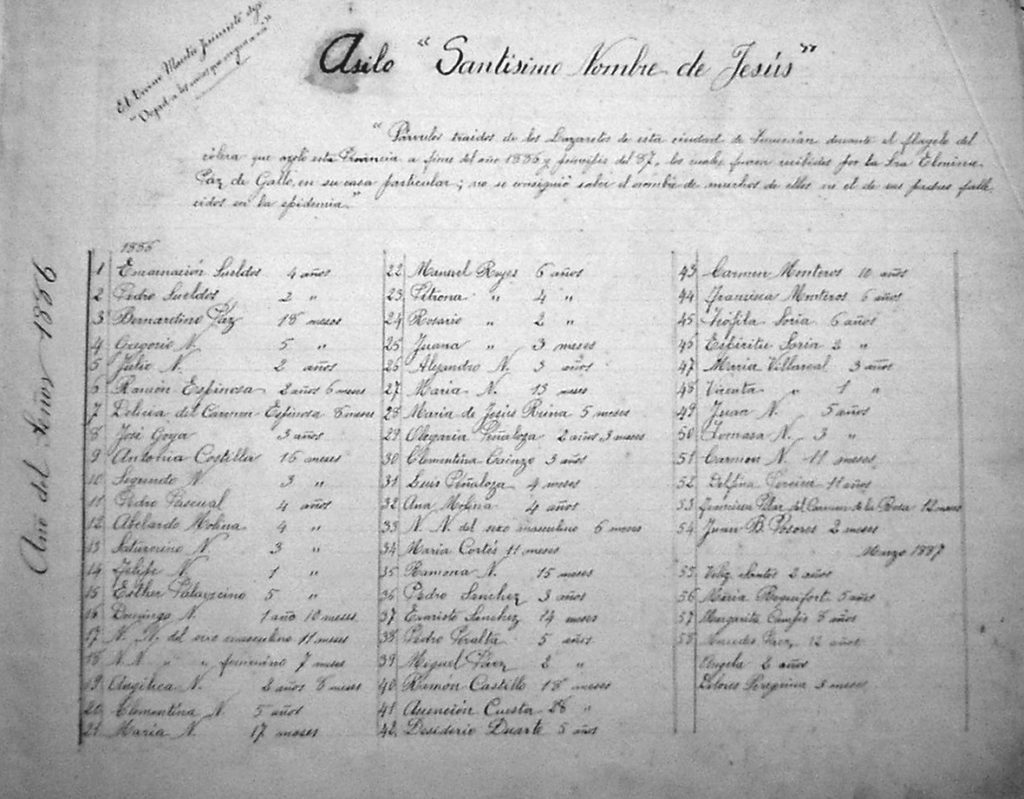 El Divino Maestro Jesucristo dijo
"Dejad a los niños que vengan a mí"
Asilo "Santísimo Nombre de Jesús"
"Párvulos traidos de los Lazaretos de esta ciudad de Tucumán durante el flagelo del
cólera que azoló esta Provincia a fines del año 1886 y principios del 87, los cuales fueron recibidos por la Sra Elmina
Paz de Gallo, en su casa particular; no se consiguió saber el nombre de muchos de ellos ni el de sus padres falle
cidos en la epidemia."
Año del Señor 1886
1886
1 Encarnación Sueldos 4 años
2 Pedro Sueldos 2 "
3 Bernardino Páz 18 meses
4 Gregorio N. 5 "
5 Julio N. 2 años
6 Ramón Espinosa 2 años 6 meses
7 Delicia del Carmen Espinosa 8 meses
8 José Goya 3 años
9 Antonia Costilla 16 meses
10 Segundo N. 3 "
11 Pedro Pascual 4 años
12 Abelardo Molina 4 "
13 Saturnino N. 3 "
14 Felipe N. 1 "
15 Esther Palavicino 5 "
16 Domingo N. 1 año 10 meses
17 N. N. del sexo masculino 11 meses
18 N. N. " " femenino 7 meses
19 Angélica N. 2 años 8 meses
20 Clementina N. 5 años
21 María N. 17 meses
22 Manuel Reyes 6 años
23 Petrona " 4 "
24 Rosario " 2 "
25 Juana " 3 meses
26 Alejandro N. 3 años
27 María N. 13 mes
28 Maria de Jesús Reina 5 meses
29 Olegaria Peñaloza 2 años, 3 meses
30 Clementina Cainzo 3 años
31 Luis Peñaloza 4 meses
32 Ana Molina 4 años
33 N. N. del sexo masculino 6 meses
34 María Cortés 11 meses
35 Ramona N. 15 meses
36 Pedro Sanchez 3 años
37 Evaristo Sanchez 14 meses
38 Pedro Peralta 5 años
39 Miguel Páez 2 "
40 Ramón Castillo 18 meses
41 Asención Cuesta 28 "
42 Desiderio Duarte 5 años
43 Carmen Monteros 10 años
44 Francisca Monteros 6 años
45 Teófila Soria 6 años
46 Espiritu Soria 2 "
47 María Villareal 3 años
48 Vicenta " 1 "
49 Juan N. 5 años
50 Tomasa N. 3 "
51 Carmen N. 11 meses
52 Delfina Pereira 11 años
53 Francisca Pilar del Carmen de la Rosa 12 meses
54 Juan B. 2 meses
Marzo 1887
55 Santos 2 años
56 María Roquifort 5 años
57 Margarita 8 años
58 Mercedes 12 años
Angela 2 años
Dolores Peregrina 3 meses